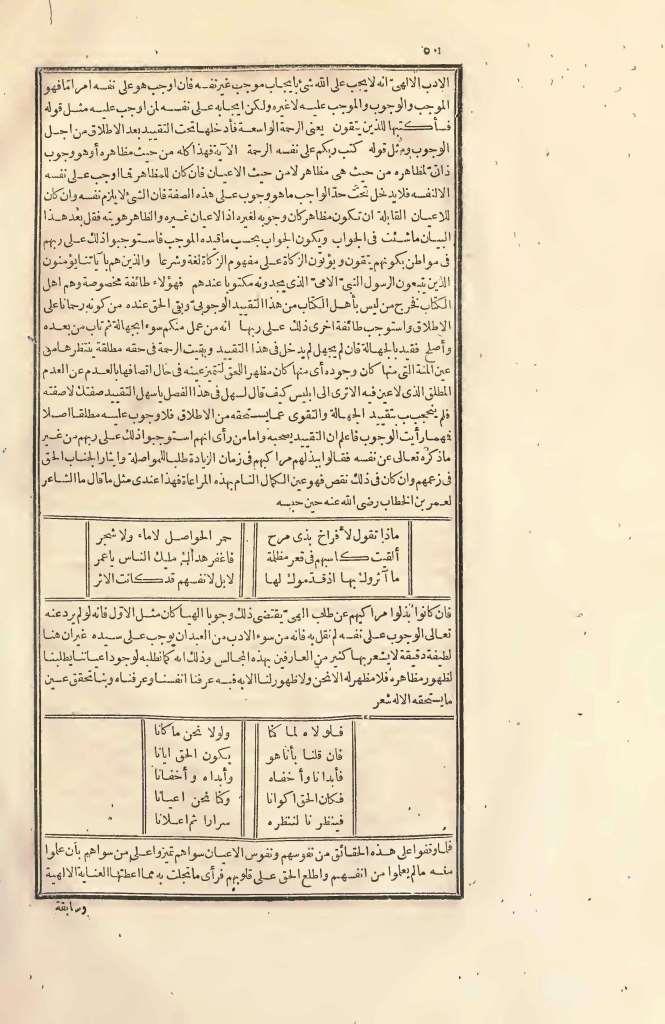 ٥٠١
الادب الالهىّ انه لا يجب على الله شئ بايجاب موجب غير نفسه فان اوجب هو على نفسه امرا ما فهو
الموجب والوجوب والموجب عليه لا غيره ولكن ايجابه على نفسه لمن اوجب عليه مثل قوله
فسأكتبها للذين يتقون يعنى الرحمة الواسعة فأدخلها تحت التقييد بعد الاطلاق من اجل
الوجوب ومثل قوله كتب ربكم على نفسه الرحمة الآية فهذا كله من حيث مظاهره أو هو وجوب
ذاتىّ لمظاهره من حيث هى مظاهر لا من حيث الاعيان فان كان للمظاهر فما اوجب على نفسه
الا لنفسه فلا يدخل تحت حدّ الواجب ما هو وجوب على هذه الصفة فان الشئ لا يلزم نفسه وان كان
للاعيان القابلة ان تكون مظاهر كان وجوبه لغيره اذ الاعيان غيره والظاهر هويته فقل بعد هذا
البيان ما شئت فى الجواب ويكون الجواب بحسب ما قيده الموجب فاستوجبوا ذلك على ربهم
فى مواطن بكونهم يتقون ويؤتون الزكاة على مفهوم الزكاة لغة وشرعا والذين هم بآياتنا يؤمنون
الذين يتبعون الرسول النبىّ الامىّ الذى يجدونه مكتوبا عندهم فهؤلاء طائفة مخصوصة وهم اهل
الكتاب فخرج من ليس بأهل الكتاب من هذا التقييد الوجوبىّ وبقى الحق عنده من كونه رحمانا على
الاطلاق واستوجب طائفة اخرى ذلك على ربها انه من عمل منكم سوءا بجهالة ثم تاب من بعده
وأصلح فقيد بالجهالة فان لم يجهل لم يدخل فى هذا التقييد وبقيت الرحمة فى حقه مطلقة ينتظرها من
عين المنة التى منها كان وجوده أى منها كان مظهرا للحق لتتميز عينه فى حال اتصافها بالعدم عن العدم
المطلق الذى لا عين فيه الا ترى الى ابليس كيف قال لسهل فى هذا الفصل يا سهل التقييد صفتك لا صفته
فلم ينحجب بتقييد الجهالة والتقوى عما يستحقه من الاطلاق فلا وجوب عليه مطلقا اصلا
فمهما رأيت الوجوب فاعلم ان التقييد يصحبه واما من رأى انهم استوجبوا ذلك على ربهم من غير
ما ذكره تعالى عن نفسه فقالوا ببذلهم مراكبهم فى زمان الزيادة طلبا للمواصلة وايثارا لجناب الحق
فى زعمهم وان كان فى ذلك نقص فهو عين الكمال التام بهذه المراعاة فهذا عندى مثل ما قال الشاعر
لعمر بن الخطاب رضى الله عنه حين حبسه
ماذا تقول لأفراخ بذى مرح حمر الحواصل لا ماء ولا شجر
ألقيت كاسبهم فى قعر مظلمة فاغفر هداك مليك الناس يا عمر
ما آثروك بها اذ قدّموك لها لا بل لانفسهم قد كانت الاثر
فان كانوا بذلوا مراكبهم عن طلب الهىّ يقتضى ذلك وجوبا الهيا كان مثل الاوّل فانه لو لم يرد عنه
تعالى الوجوب على نفسه لم نقل به فانه من سوء الادب من العبد ان يوجب على سيده غير ان هنا
لطيفة دقيقة لا يشعر بها كثير من العارفين بهذه المجالس وذلك انه كما نطلبه لوجود اعياننا يطلبنا
لظهور مظاهره فلا مظهر له الا نحن ولا ظهور لنا الا به فبه عرفنا انفسنا وعرفناه وبنا تحقق عين
ما يستحقه الاله شعر
فلولاه لما كنا ولولا نحن ما كانا
فان قلنا بأنا هو يكون الحق ايانا
فأبدانا وأخفاه وأبداه وأخفانا
فكان الحق اكوانا وكنا نحن اعيانا
فيظهرنا لنظهره سرارا ثم اعلانا
فلما وقفوا على هذه الحقائق من نفوسهم ونفوس الاعيان سواهم تميزوا على من سواهم بأن علموا
منه ما لم يعلموا من انفسهم واطلع الحق على قلوبهم فرأى ما تجلت به مما اعطتها العناية الالهية
وسابقة